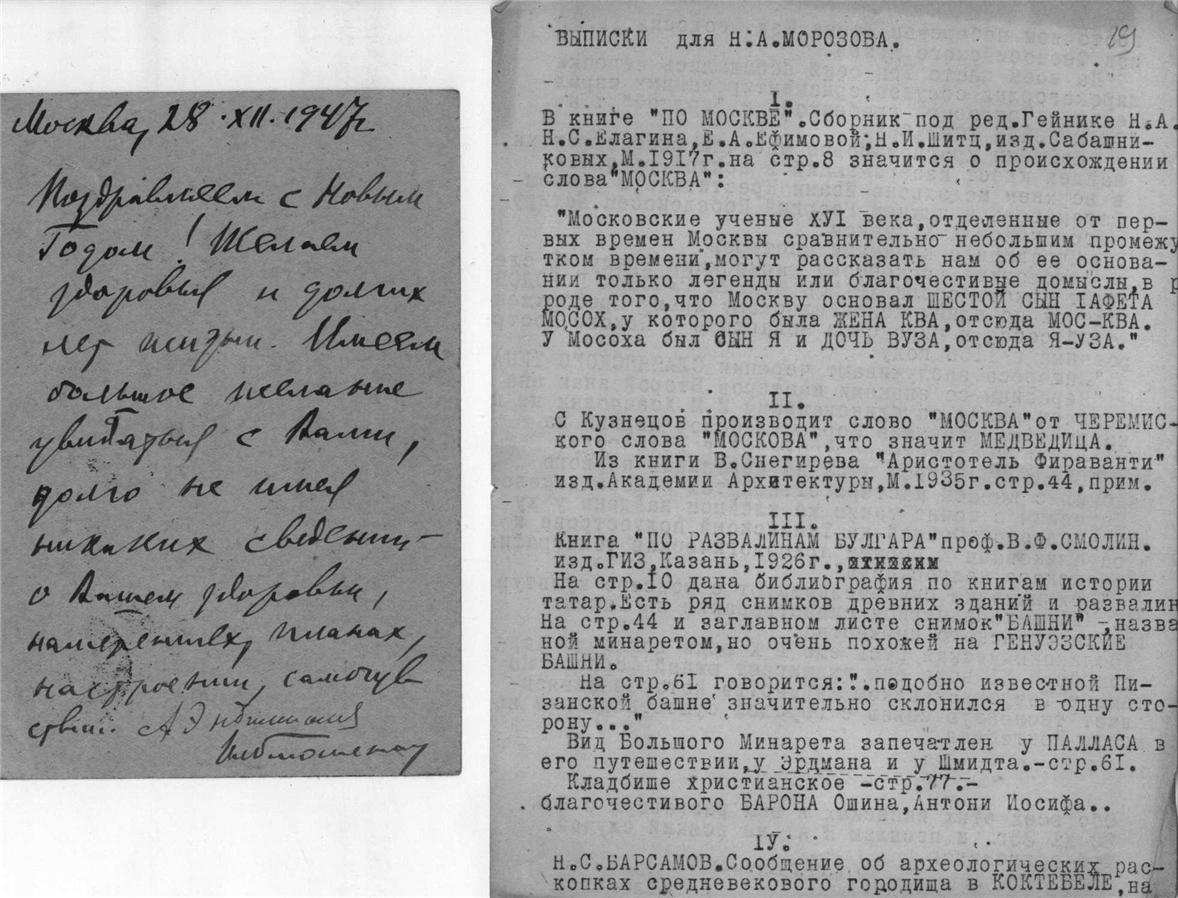 Москва, 28.XII.1947г
Поздравляем с Новым
Годом! Желаем
здоровья и долгих
лет жизни. Имеем
большое желание
увидаться с Вами,
долго не имея
никаких сведений
о Вашем здоровьи,
намерениях, планах,
настроении, самочув
ствии.
ВЫПИСКИ для Н.А.МОРОЗОВА.
19
I.
В книге "ПО МОСКВЕ".Сборник под ред.Гейнике Н.А.
Н.С.Елагина,Е.А.Ефимовой,Н.И.Шитц,изд.Сабашни-
ковых,М.1917г.на стр.8 значится о происхождении
слова"МОСКВА":
"Московские ученые XУI века,отделенные от пер-
вых времен Москвы сравнительно небольшим промежу
тком времени,могут рассказать нам об ее основа-
нии только легенды или благочестивые домыслы,в р
роде того,что Москву основал ШЕСТОЙ СЫН IАФЕТА
МОСОХ,у которого была ЖЕНА КВА,отсюда МОС-КВА.
У Мосоха был СЫН Я и ДОЧЬ ВУЗА,отсюда Я-УЗА."
II.
С Кузнецов производит слово "МОСКВА"от ЧЕРЕМИС-
кого слова "МОСКОВА",что значит МЕДВЕДИЦА.
Из книги В.Снегирева "Аристотель Фираванти"
изд.Академии Архитектуры,М.1935г.стр.44,прим.
III.
Книга "ПО РАЗВАЛИНАМ БУЛГАРА"проф.В.Ф.СМОЛИН.
изд.ГИЗ,Казань,1926г.,
На стр.10 дана библиография по книгам истории
татар.Есть ряд снимков древних зданий и развалин
На стр.44 и заглавном листе снимок"БАШНИ" -,назва
ной минаретом,но очень похожей на ГЕНУЭЗСКИЕ
БАШНИ.
На стр.61 говорится:".подобно известной Пи-
занской башне значительно склонился в одну сто-
рону..."
Вид Большого Минарета запечатлен у ПАЛЛАСА в
его путешествии,у Эрдмана и у Шмидта.-стр.61.
Кладбише христианское -стр.77.-
благочестивого БАРОНА Ошина,Антони Иосифа..
IУ.
Н.С.БАРСАМОВ.Сообщение об археологических рас-
копках средневекового городища в КОКТЕБЕЛЕ,на